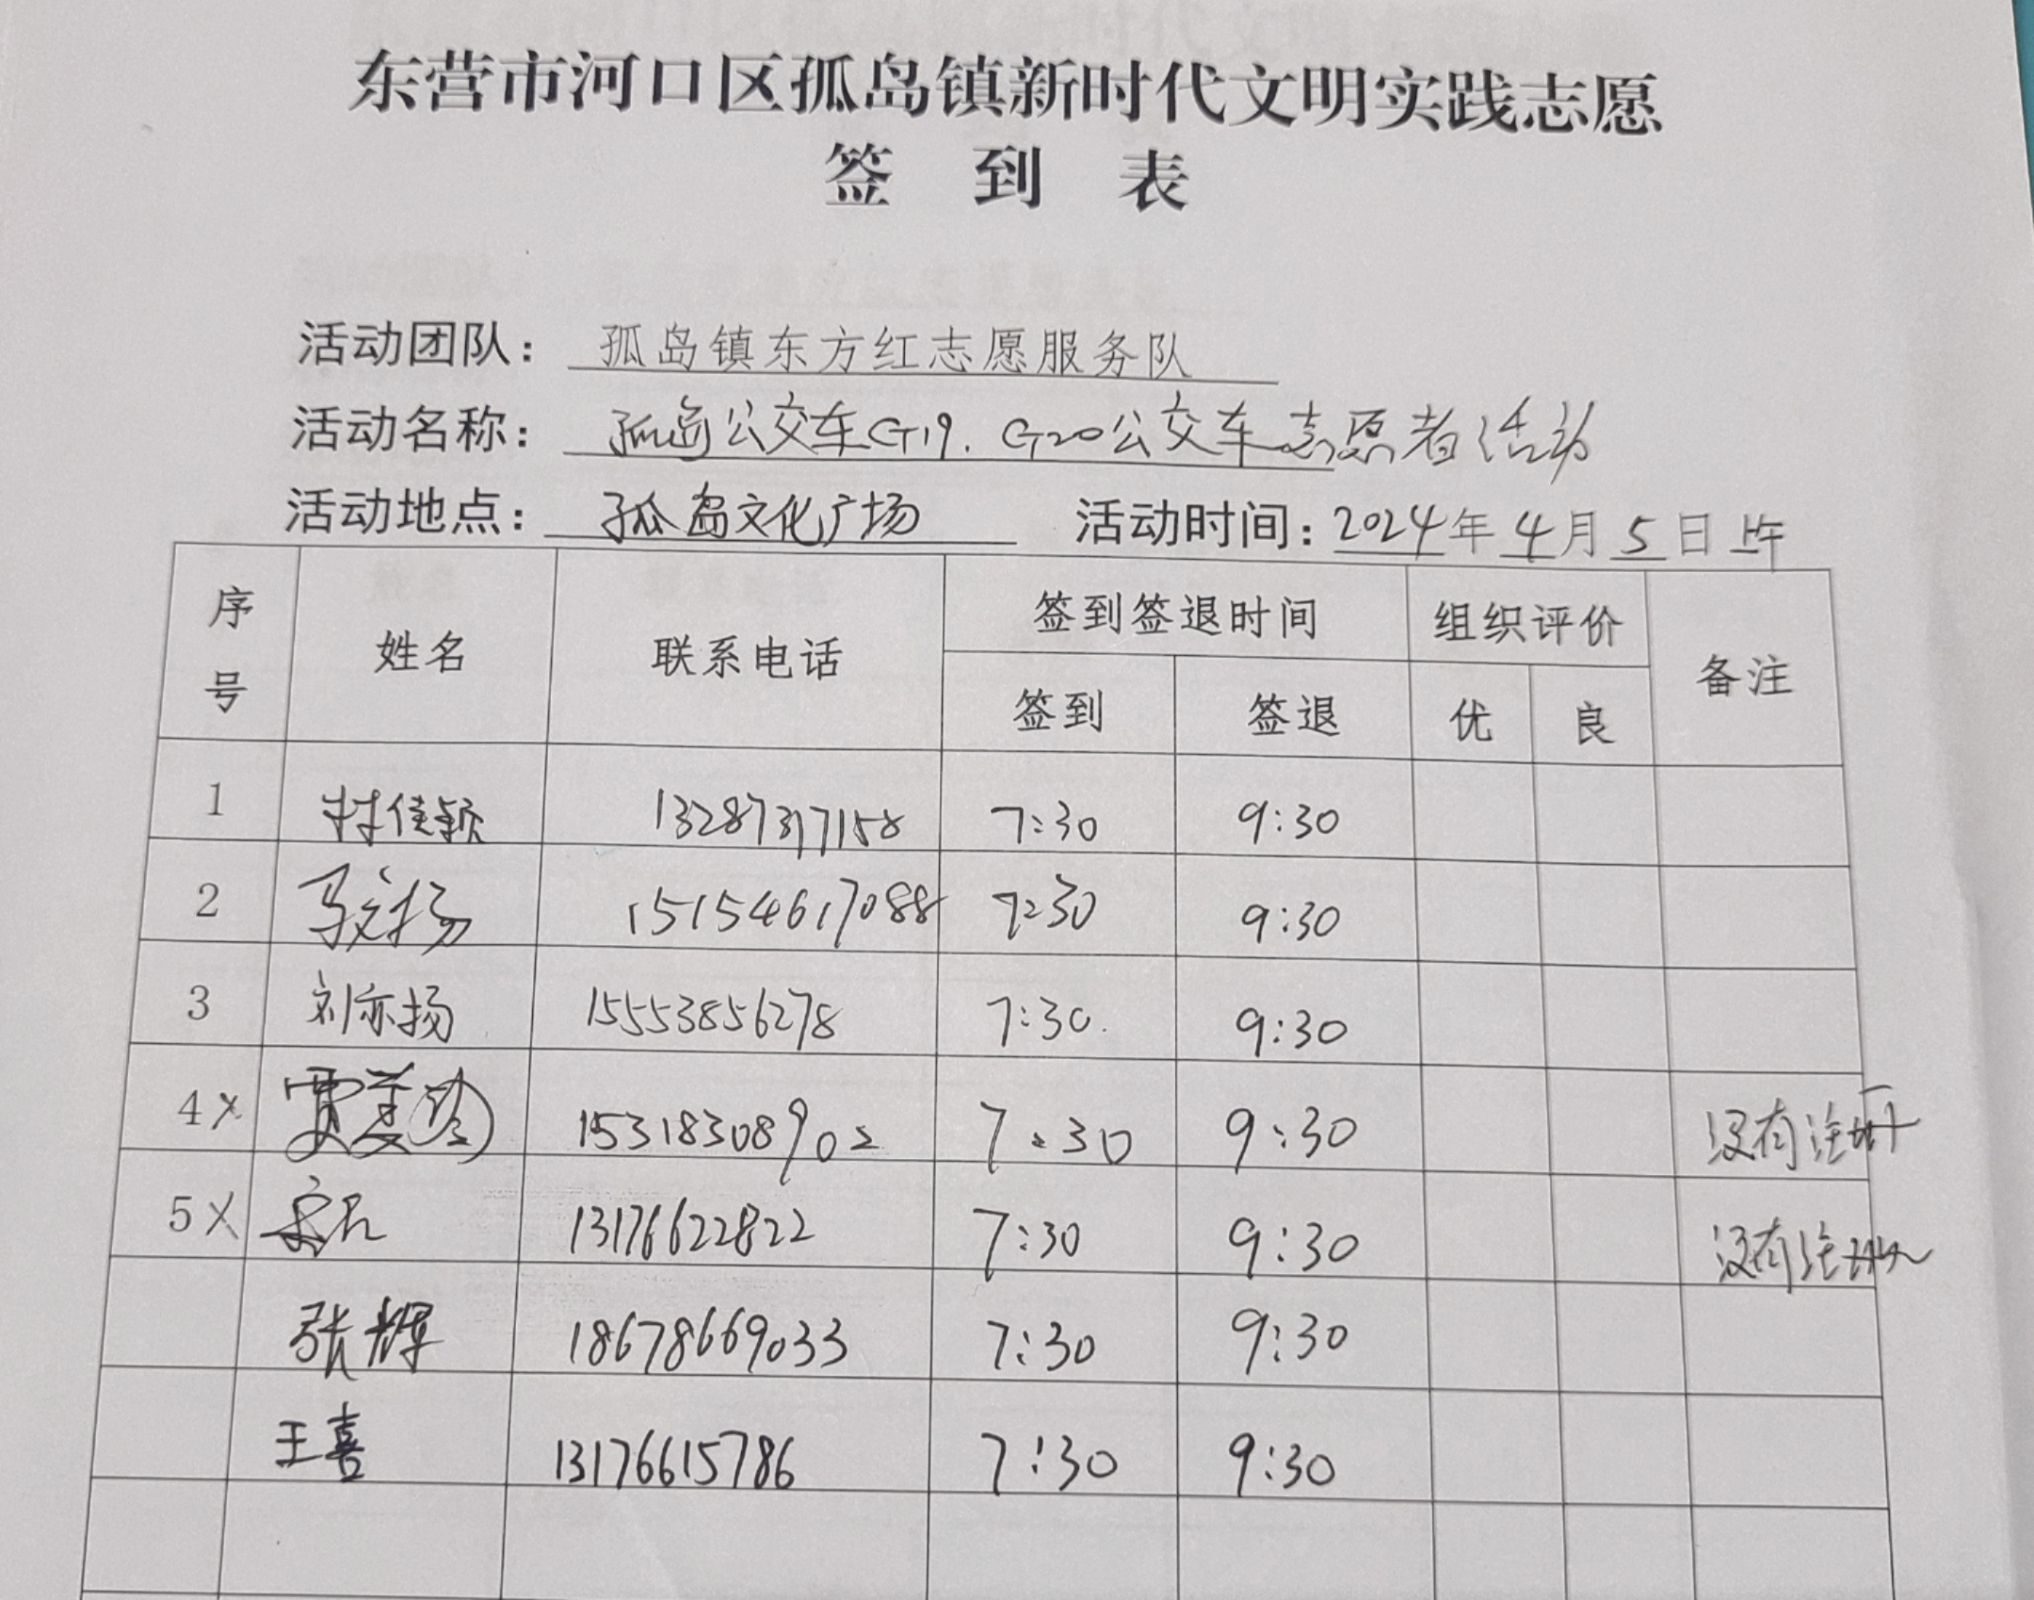 东营市河口区孤岛镇新时代文明实践志愿
签 到 表
活动团队：孤岛镇东方红志愿服务队
活动名称：孤岛公交车G19.G20公交车志愿者活动
活动地点：孤岛文化广场 活动时间：2024年4月5日上午
序号 姓名 联系电话 签到签退时间 组织评价 备注
签到 签退 优 良
1 13287317158 7:30 9:30
2 15154617088 7:30 9:30
3 刘亦扬 15553856278 7:30. 9:30
4× 15318308902 7:30 9:30 没有注册
5× 13176622822 7:30 9:30 没有注册
张辉 18678669033 7:30 9:30
王喜 13176615786 7:30 9:30